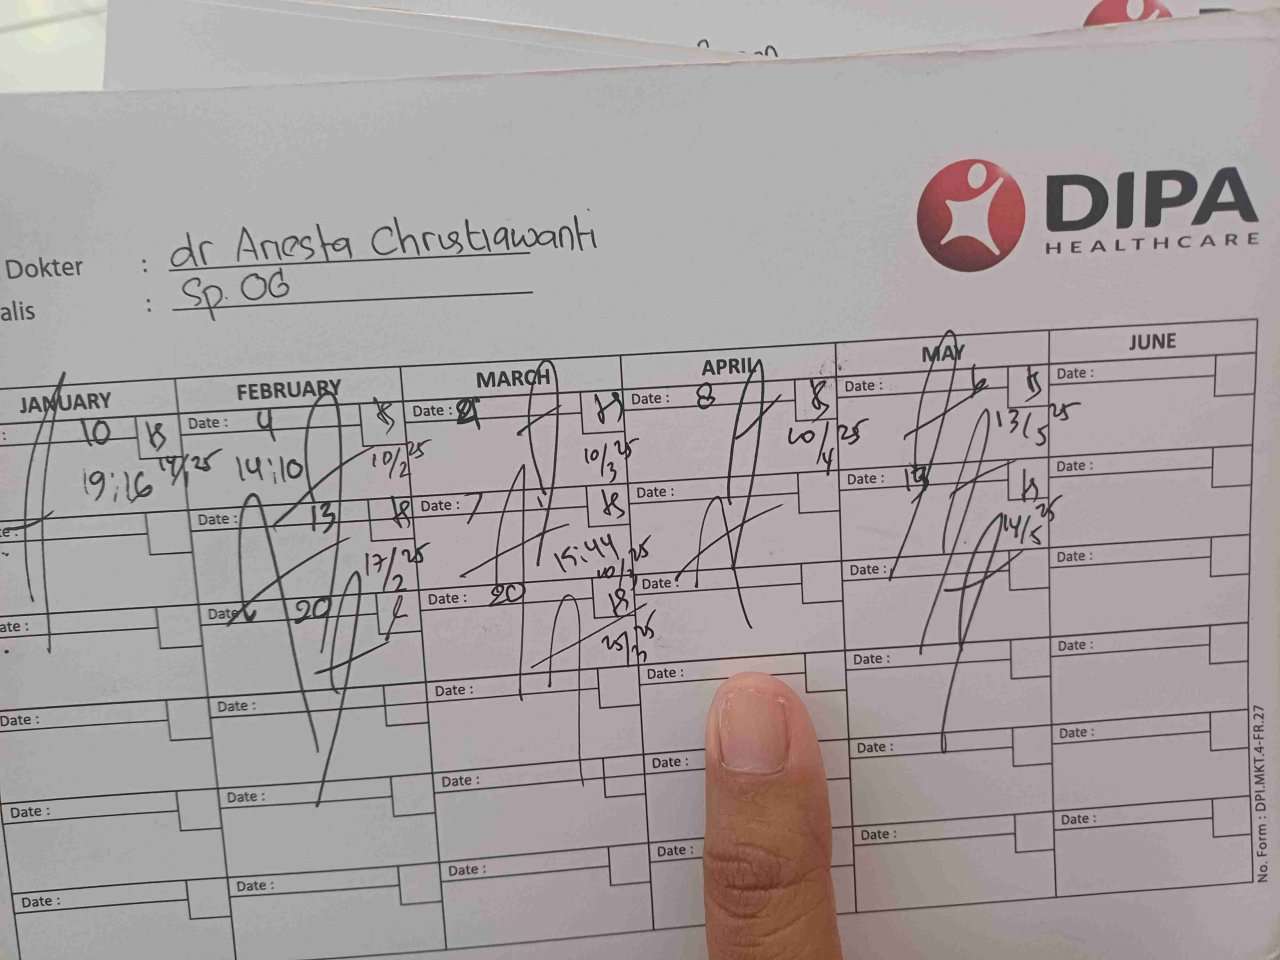 DIPA
HEALTHCARE
Dokter : dr Anesta Christiawanti
alis : Sp. OG
JANUARY FEBRUARY MARCH APRIL MAY JUNE
: 10 Date : 4 Date : Date : 8 Date : 6 Date :
19:16 14/1 25 14:10 10/2 25 10/3 25 10/4 25 13/5 25
te : Date : 13 Date : 7 Date : Date : 13 Date :
17/2 25 15:44 10/3 25 14/5 25
ate : Date : 20 Date : 20 Date : Date : Date :
25/3 25
Date : Date : Date : Date : Date : Date :
Date : Date : Date : Date : Date : Date :
Date : Date : Date : Date : Date : Date :
No. Form : DPI.MKT.4-FR.27